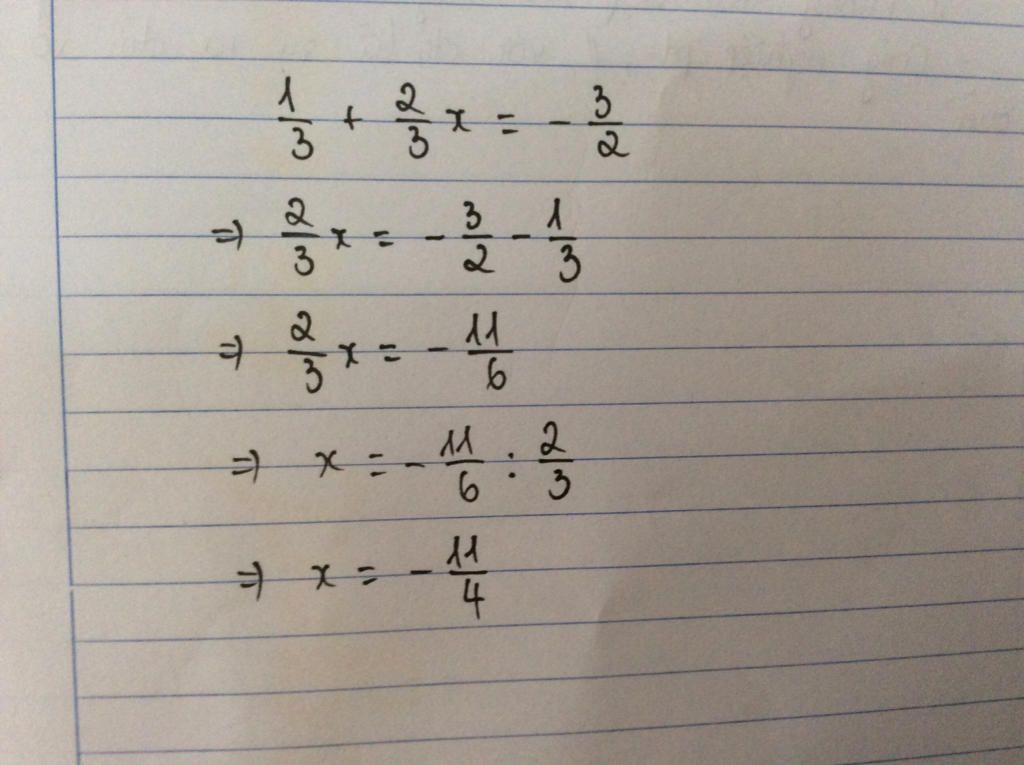 1/3 + 2/3 x = - 3/2
=> 2/3 x = - 3/2 - 1/3
=> 2/3 x = - 11/6
=> x = - 11/6 : 2/3
=> x = - 11/4